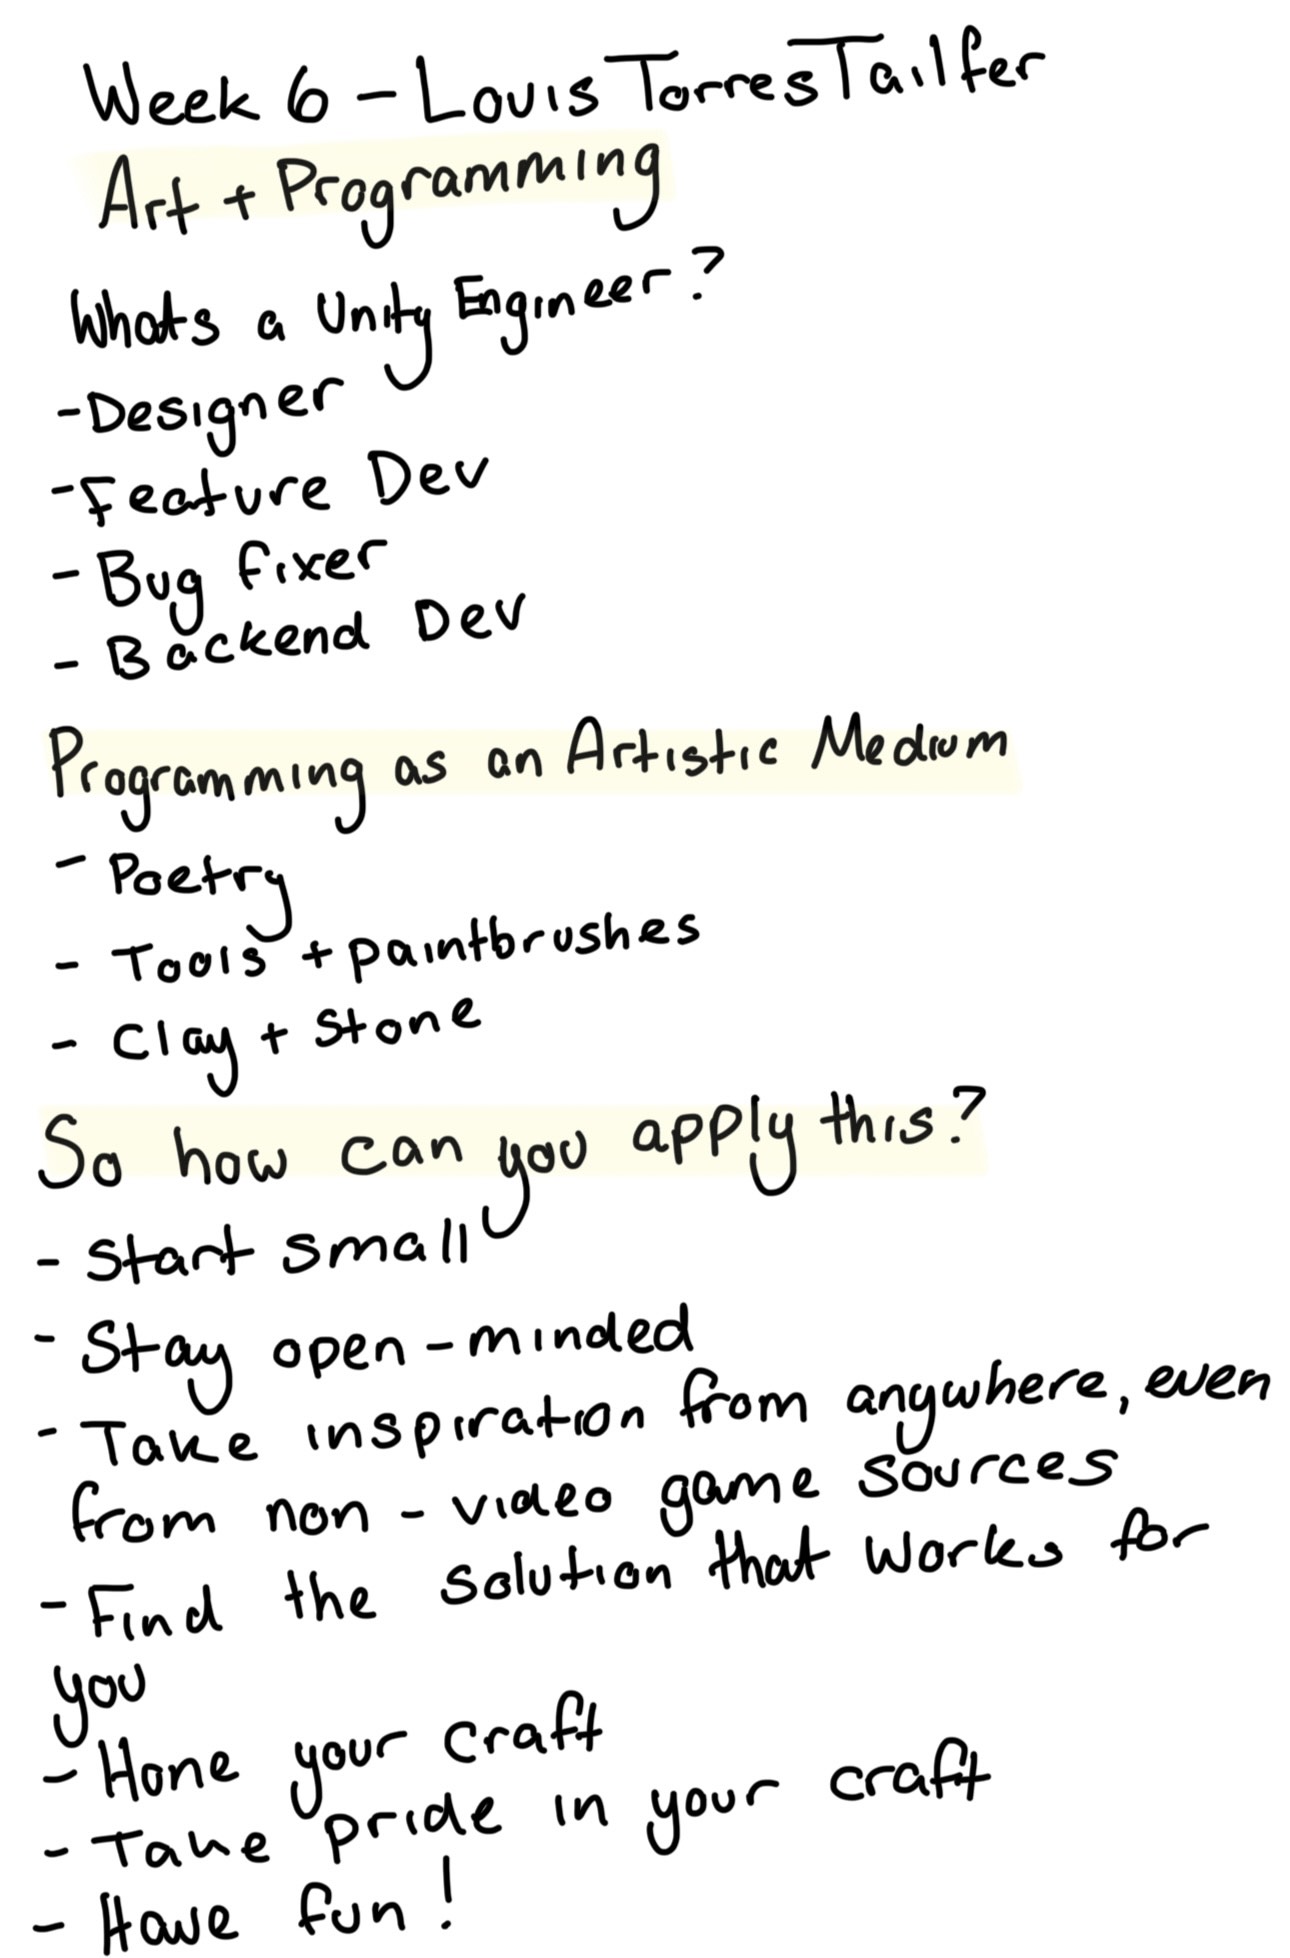 Week 6 - Louis Torres Tailfer
Art + Programming
Whats a Unity Engineer?
- Designer
- Feature Dev
- Bug fixer
- Backend Dev
Programming as an Artistic Medium
- Poetry
- Tools + paintbrushes
- Clay + Stone
So how can you apply this?
- Start small
- Stay open-minded
- Take inspiration from anywhere, even
from non-video game sources
- Find the solution that works for
you
- Hone your craft
- Take pride in your craft
- Have fun!